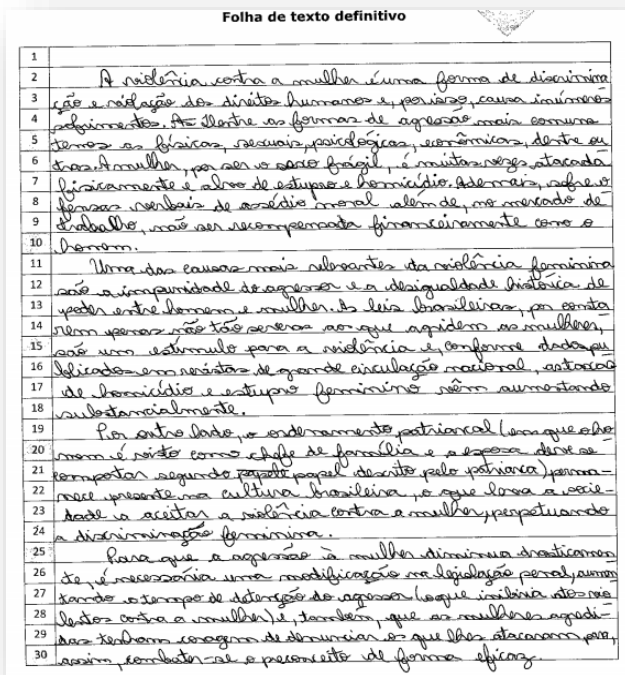 Folha de texto definitivo
1
2 A violência contra a mulher é uma forma de discrimina
3 ção e violação dos direitos humanos e, por isso, causa inúmeros
4 sofrimentos. As Dentre as formas de agressão mais comuns
5 temos as físicas, sexuais, psicológicas, econômicas, dentre ou
6 tras. A mulher, por ser o sexo frágil, é muitas vezes atacada
7 fisicamente e alvo de estupro e homicídio. Ademais, sofre o
8 fensas verbais de assédio moral além de, no mercado de
9 trabalho, não ser recompensada financeiramente como o
10 homem.
11 Uma das causas mais relevantes da violência feminina
12 são a impunidade do agressor e a desigualdade histórica de
13 poder entre homem e mulher. As leis brasileiras, por consta
14 rem penas não tão severas ao que agridem as mulheres,
15 são um estímulo para a violência e, conforme dados pu
16 blicados em revistas de grande circulação nacional, as taxas
17 de homicídio e estupro feminino vêm aumentando
18 substancialmente.
19 Por outro lado, o ordenamento patriarcal (em que o ho
20 mem é visto como chefe de família e a esposa deve se
21 comportar segundo papele papel descrito pelo patriarca) perma-
22 nece presente na cultura brasileira, o que leva a socie-
23 dade a aceitar a violência contra a mulher, perpetuando
24 a discriminação feminina.
25 Para que a agressão à mulher diminua drasticamen
26 te, é necessária uma modificação na legislação penal, aumen
27 tando o tempo de detenção do agressor (o que inibiria atos vio
28 lentos contra a mulher) e, também, que as mulheres agredi-
29 das tenham coragem de denunciar os que lhes atacaram para,
30 assim, combater-se o preconceito de forma eficaz.